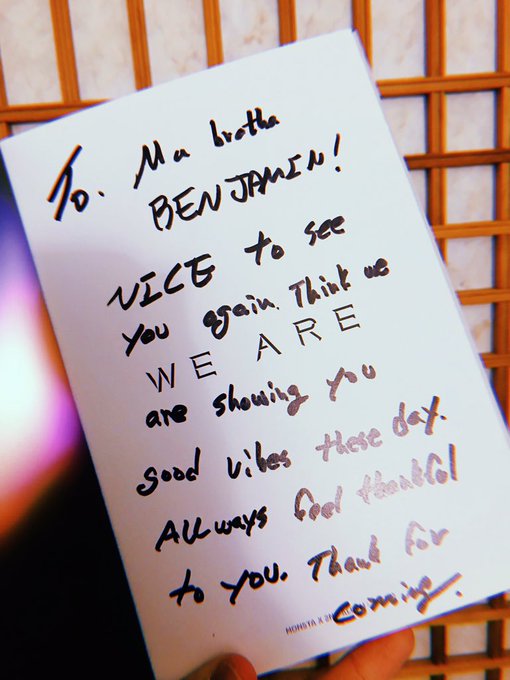 To. Ma brotha
BENJAMIN!
NICE to see
you again. Think we
WE ARE
are showing you
good vibes these day.
ALLways feel thankful
to you. Thank for
coming.
MONSTA X